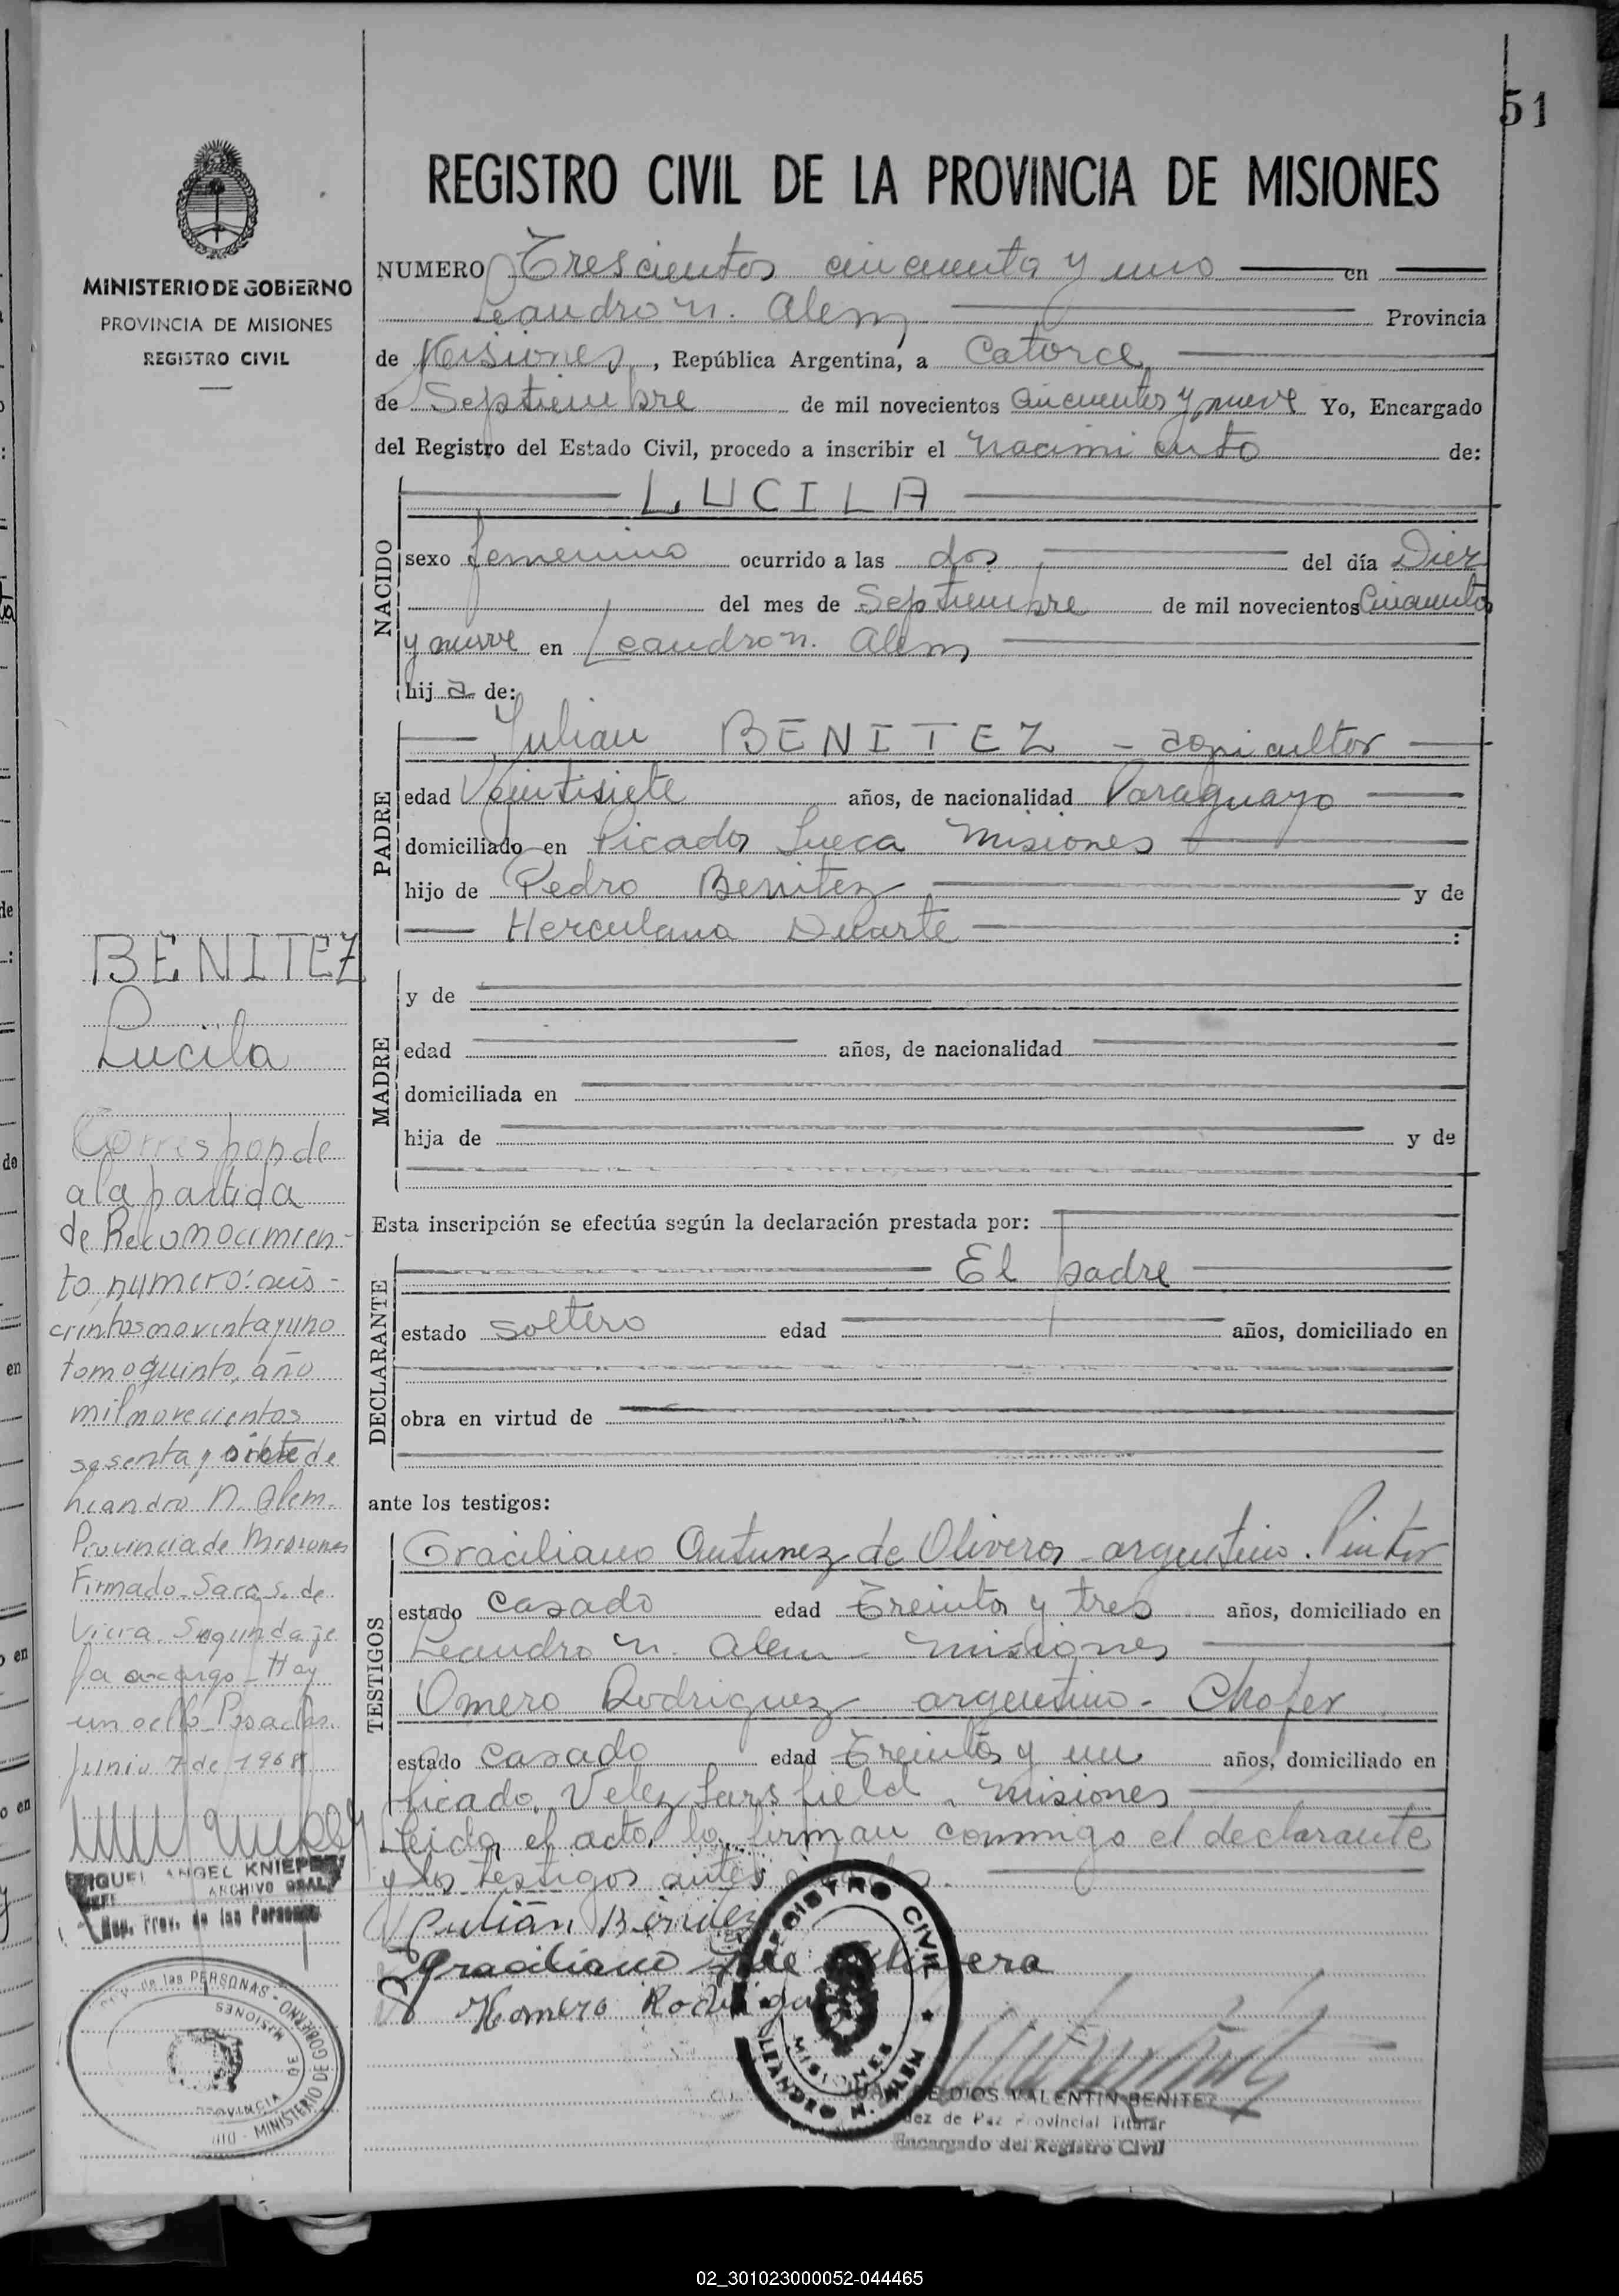 51
REGISTRO CIVIL DE LA PROVINCIA DE MISIONES
MINISTERIO DE GOBIERNO
PROVINCIA DE MISIONES
REGISTRO CIVIL
NUMERO Trescientos cincuenta y uno en
Leandro N. Alem Provincia
de Misiones, República Argentina, a Catorce
de Septiembre de mil novecientos cincuenta y nueve Yo, Encargado
del Registro del Estado Civil, procedo a inscribir el nacimiento de:
NACIDO
LUCILA
sexo femenino ocurrido a las dos del día Diez
del mes de Septiembre de mil novecientos Cincuenta
y nueve en Leandro N. Alem
hija de:
PADRE
Julian BENITEZ - agricultor
edad Veintisiete años, de nacionalidad Paraguayo
domiciliado en Picada Sueca Misiones
hijo de Pedro Benitez y de
Herculana Duarte :
MADRE
y de
edad años, de nacionalidad
domiciliada en
hija de y de
Esta inscripción se efectúa según la declaración prestada por:
DECLARANTE
El padre
estado soltero edad años, domiciliado en
obra en virtud de
ante los testigos:
TESTIGOS
Graciliano Antunez de Olivera - argentino. Pintor
estado casado edad Treinta y tres años, domiciliado en
Leandro N. Alem - Misiones
Omero Rodriguez - argentino - Chofer
estado casado edad Treinta y un años, domiciliado en
Picada Velez Sarsfield. Misiones
Leida el acta la firman conmigo el declarante
y los testigos antes
Julián Benitez
Graciliano de Olivera
Homero Rodrigue
REGISTRO CIVIL
MISIONES
LEANDRO N. ALEM
JUAN DE DIOS VALENTIN BENITEZ
Juez de Paz Provincial Titular
Encargado del Registro Civil
BENITEZ
Lucila
Corresponde
a la partida
de Reconocimien-
to numero: seis-
cientos noventa y uno
tomo quinto, año
mil novecientos
sesenta y siete de
Leandro N. Alem.
Provincia de Misiones
Firmado. Sara S. de
Vieira. Segunda Je
fa a cargo - Hay
un sello Posadas.
Junio 7 de 1968
MIGUEL ANGEL KNIEPE
JEFE ARCHIVO GRAL.
Rep. Prov. de las Personas
de las PERSONAS - MINISTERIO DE GOBIERNO
PROVINCIA DE MISIONES
02_301023000052-044465